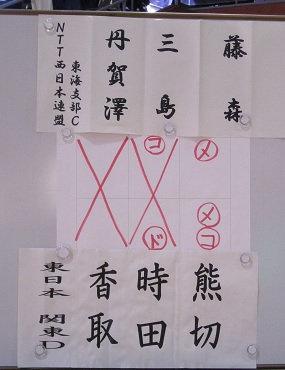 藤森
三島
丹賀澤
東海支部C
NTT西日本連盟
メ
コ
メ
コ
ド
熊切
時田
香取
東日本 関東D